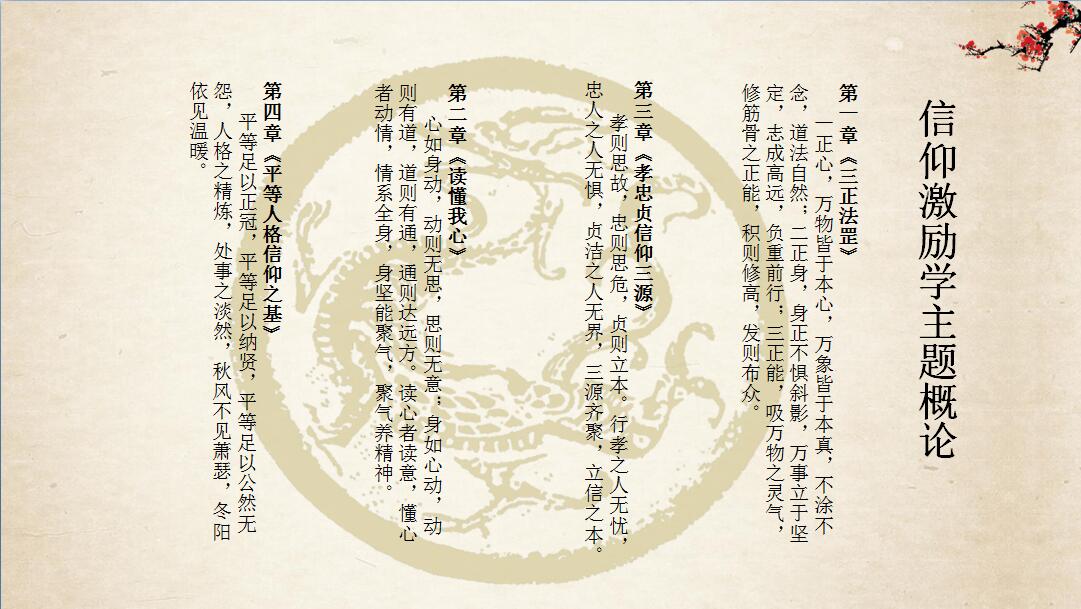 信仰激励学主题概论
第一章《三正法罡》
一正心，万物皆于本心，万象皆于本真，不涂不
念，道法自然；二正身，身正不惧斜影，万事立于坚
定，志成高远，负重前行；三正能，吸万物之灵气，
修筋骨之正能，积则修高，发则布众。
第三章《孝忠贞信仰三源》
孝则思故，忠则思危，贞则立本。行孝之人无忧，
忠人之人无惧，贞洁之人无界，三源齐聚，立信之本。
第二章《读懂我心》
心如身动，动则无思，思则无意；身如心动，动
则有道，道则有通，通则达远方。读心者读意，懂心
者动情，情系全身，身坚能聚气，聚气养精神。
第四章《平等人格信仰之基》
平等足以正冠，平等足以纳贤，平等足以公然无
怨，人格之精炼，处事之淡然，秋风不见萧瑟，冬阳
依见温暖。